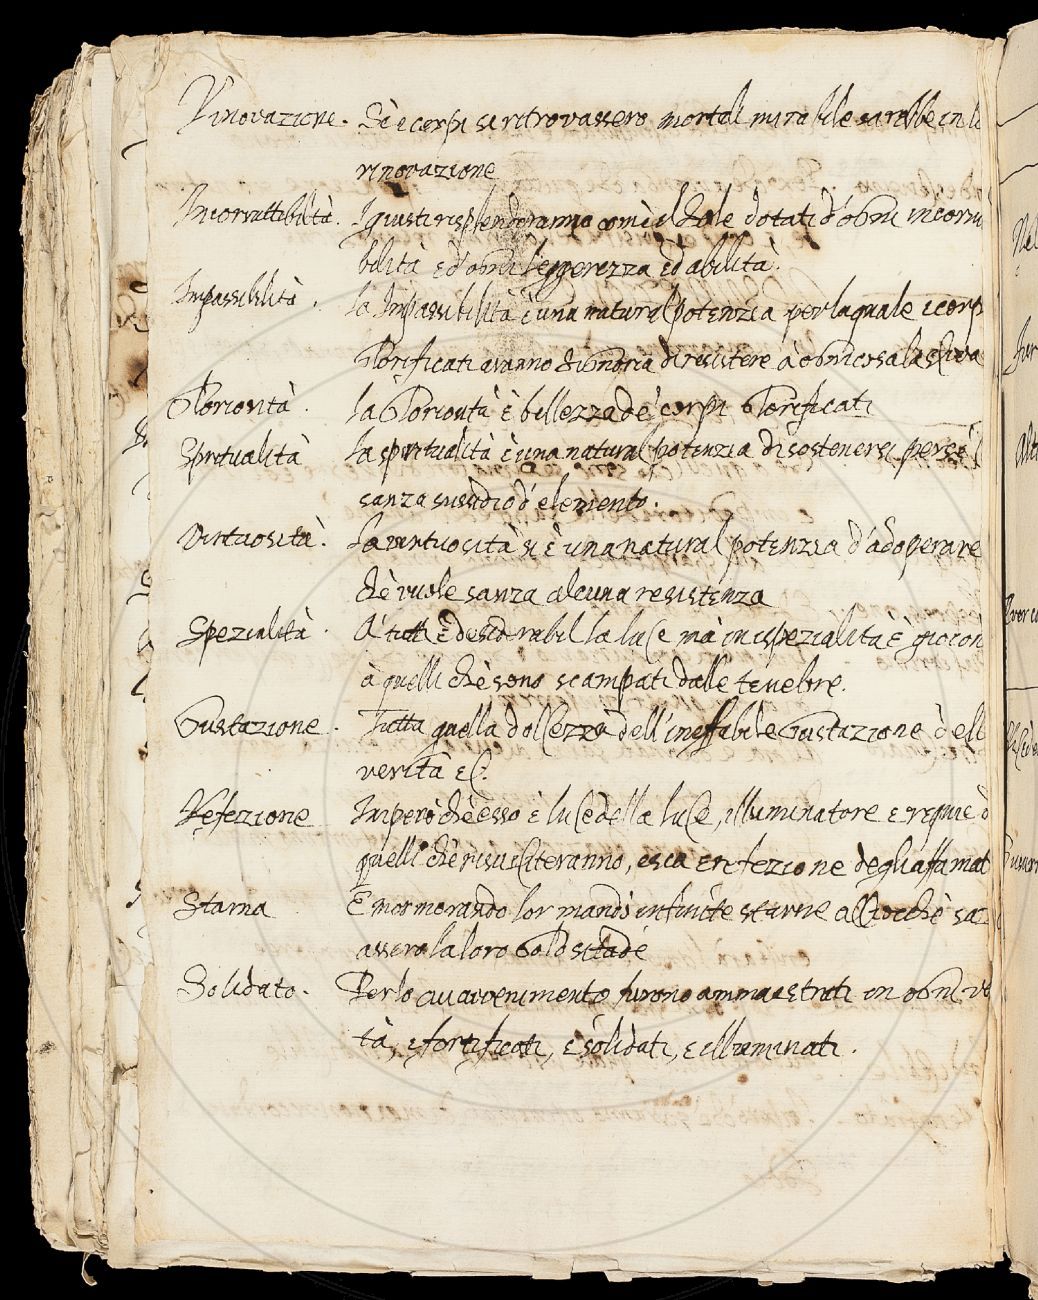 Rinovazione. Se i corpi si ritrovassero mortali mirabile sarebbe in l
rinovazione
Incoruttibiltà. I giusti risplenderanno com'è il Sole dotati d'ogni incorru
bilità e d'ogni leggerezza ed abilità.
Impassibilità. La Impassibilità è una natural potenzia per la quale i corp
glorificati avanno di resistere à ogni cosa
Gloriosità. la Gloriosità è bellezza de' corpi Glorificati
Spritualità la spiritualità è una natural potenzia di sostenersi per sè
sanza sussidio d'elemento.
Virtuosità. La virtuosità si è una natural potenzia d'adoperare
chè vuole sanza alcuna resistenza
Spezialità. A' tutti è desiderabil la luce mà in ispezialità è
à quelli chè sono scampati dalle tenebre.
Gustazione. Tutta quella dolcezza dell'ineffabile Gustazione dell
verità ec.
Refezione Imperò chè esso è luce della luce, illuminatore e requie d
quelli chè risusciteranno, esca e refezione degli affamat
Starna E mormorando lor mandò infinite starne acciocchè saz
assero la loro Golositade
Solidato. Per lo cui avvenimento furono ammaestrati in ogni ve
tà, e fortificati, e solidati, e illuminati.